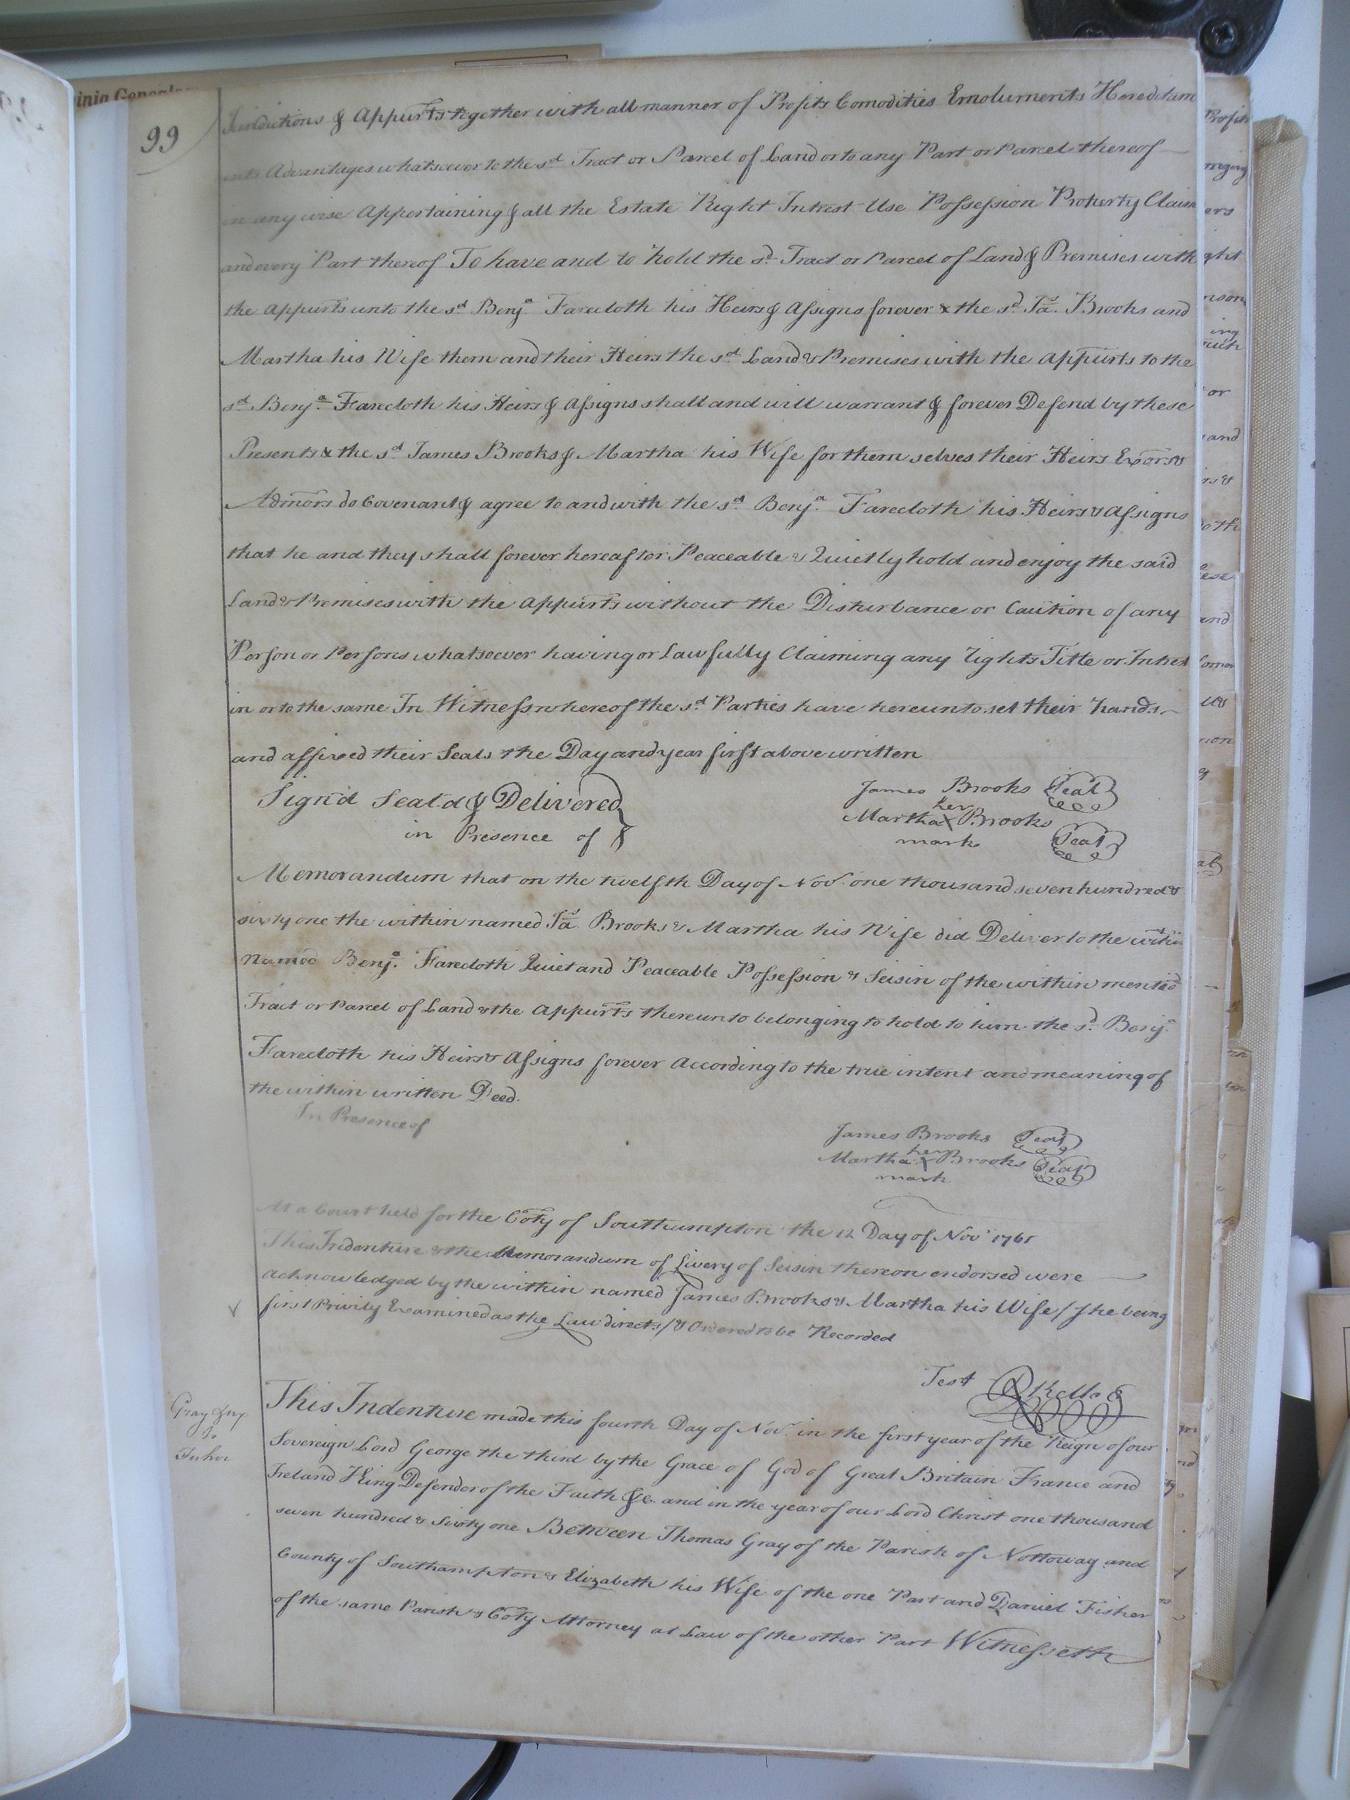 inia Genealo
99
Jurisdictions & Appurts together with all manner of Profits Comodities Emoluments Hereditam
ents Advantages whatsoever to the sd Tract or Parcel of Land or to any Part or Parcel thereof
in any wise Appertaining & all the Estate Right Intrest Use Possession Property Claim
and every Part thereof To have and to hold the sd Tract or Parcel of Land & Premises with
the Appurts unto the sd Benja Farecloth his Heirs & Assigns forever & the sd Jas Brooks and
Martha his Wife them and their Heirs the sd Land & Premises with the Appurts to the
sd Benja Farecloth his Heirs & Assigns shall and will warrant & forever Defend by these
Presents & the sd James Brooks & Martha his Wife for them selves their Heirs Exors &
Admors do Covenant & agree to and with the sd Benja Farecloth his Heirs & Assigns
that he and they shall forever hereafter Peaceable & Quietly hold and enjoy the said
Land & Premises with the Appurts without the Disturbance or Caution of any
Person or Persons whatsoever having or Lawfully Claiming any rights Title or Intrest
in or to the same In Witness whereof the sd Parties have hereunto set their hands
and affixed their Seals the Day and year first above written
Sign'd Seal'd & Delivered
in Presence of
James Brooks Seal
her
Martha X Brooks Seal
mark
Memorandum that on the twelfth Day of Novr one thousand seven hundred &
sixty one the within named Jas Brooks & Martha his Wife did Deliver to the within
named Benja Farecloth Quiet and Peaceable Possession & Seisin of the within mentd
Tract or Parcel of Land & the Appurts thereunto belonging to hold to him the sd Benja
Farecloth his Heirs & Assigns forever according to the true intent and meaning of
the within written Deed.
In Presence of
James Brooks Seal
her
Martha X Brooks Seal
mark
At a Court held for the Coty of Southampton the 12 Day of Novr 1761
This Indenture & the Memorandum of Livery of Seisin thereon endorsed were
acknowledged by the within named James Brooks & Martha his Wife / she being
first Privily Examined as the Law directs / & Ordered to be Recorded
Test R Kello
Gray &c
To
Fisher
This Indenture made this fourth Day of Novr in the first year of the Reign of our
Sovereign Lord George the third by the Grace of God of Great Britain France and
Ireland King Defender of the Faith &c. and in the year of our Lord Christ one thousand
seven hundred & Sixty one Between Thomas Gray of the Parish of Nottoway and
County of Southampton & Elizabeth his Wife of the one Part and Daniel Fisher
of the same Parish & Coty Attorney at Law of the other Part Witnesseth